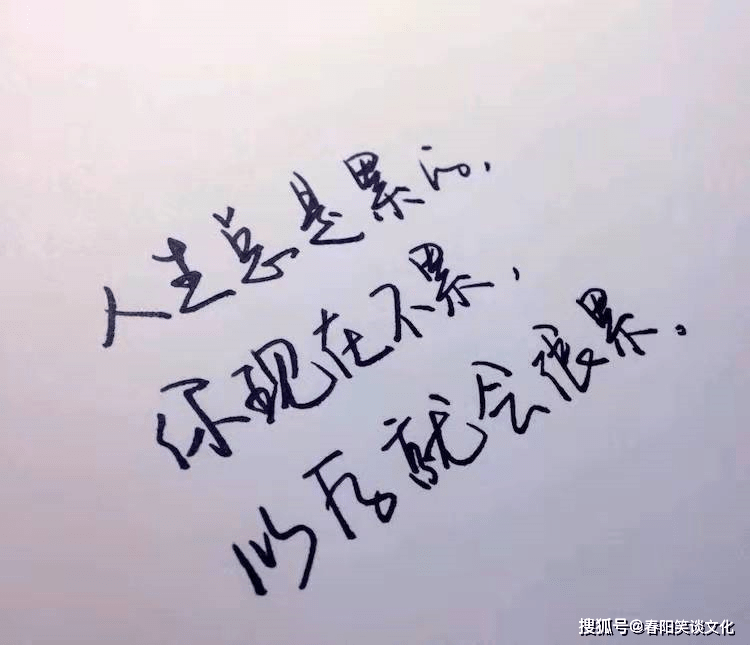 人生总是累的，
你现在不累，
以后就会很累。
搜狐号@春阳笑谈文化